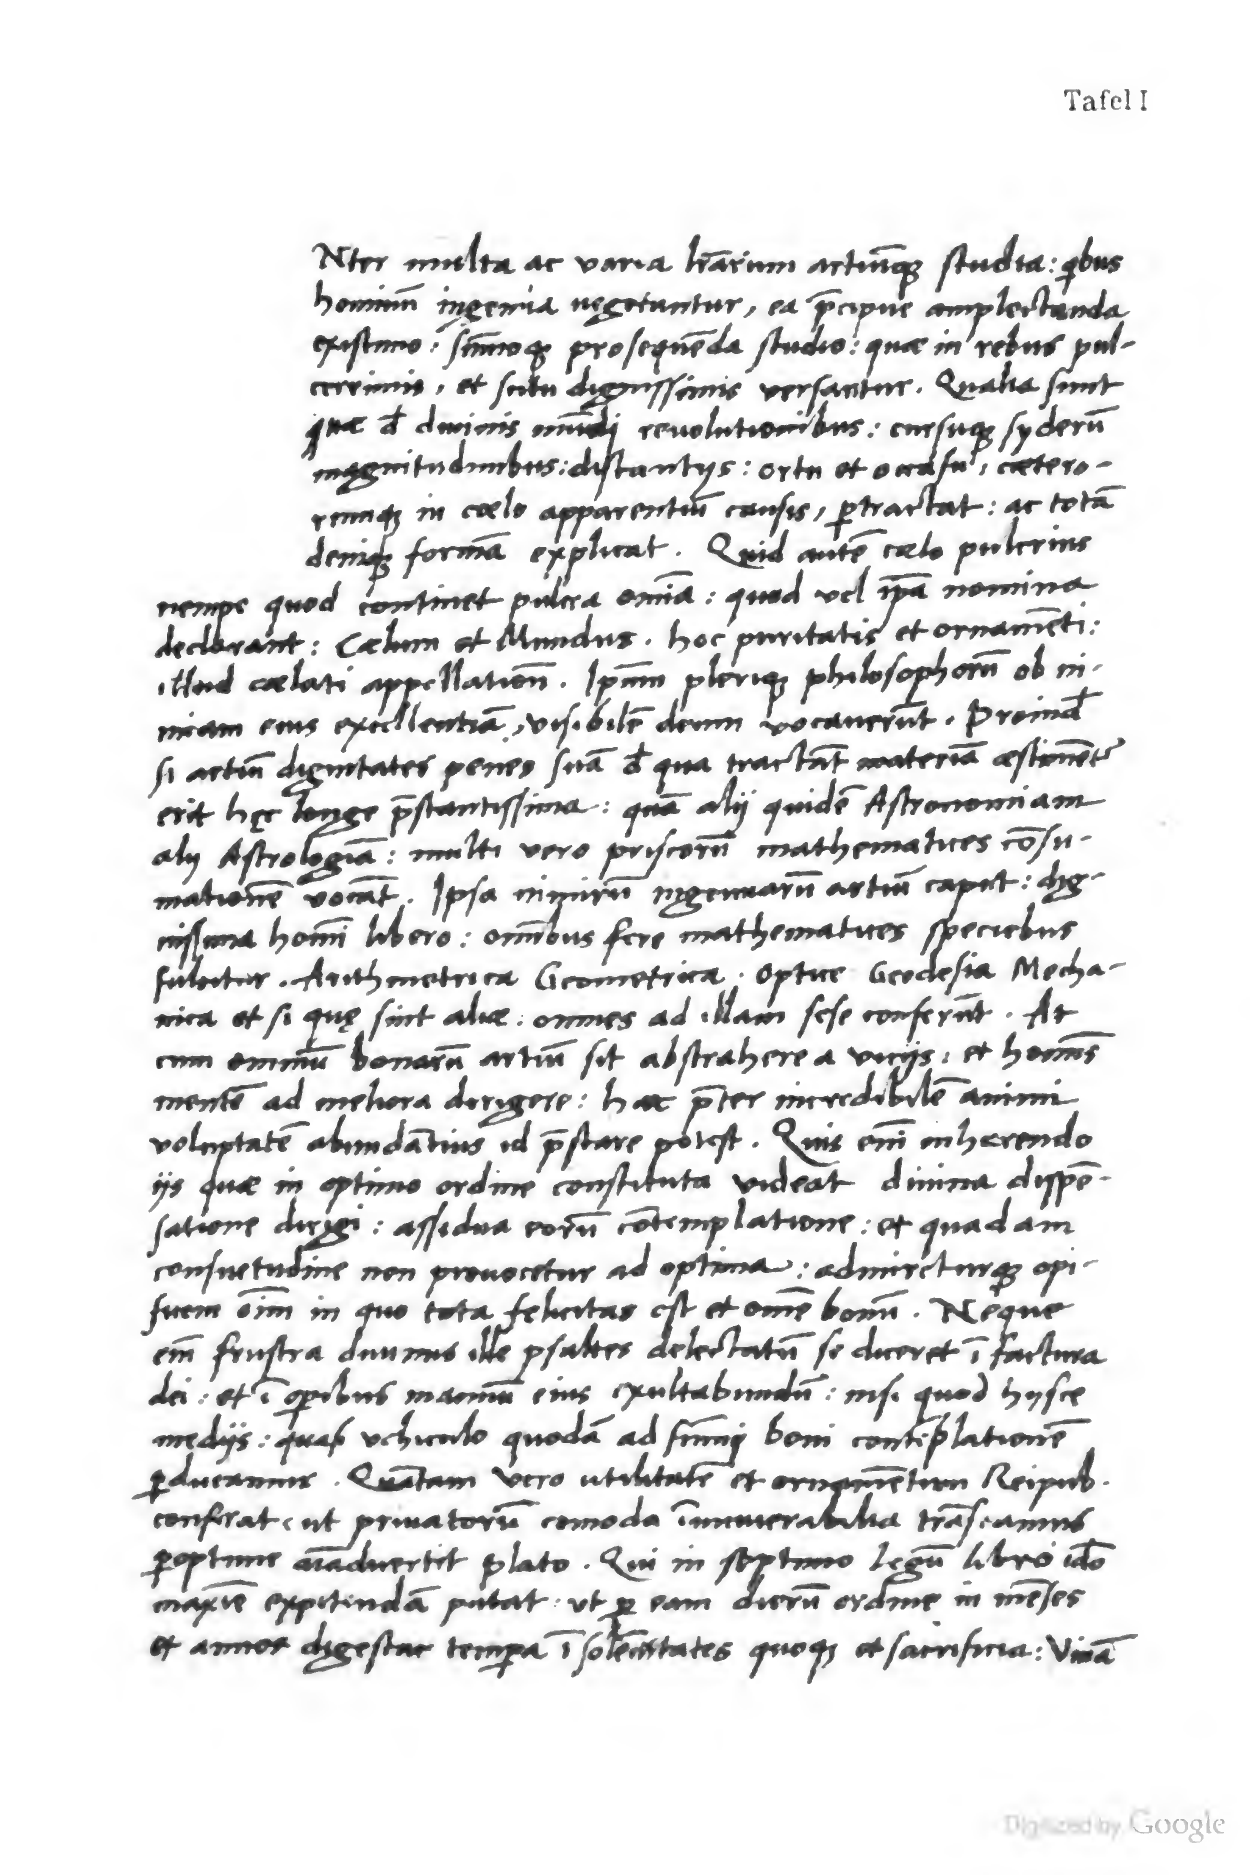 Tafel I
Nter multa ac varia lr̄arum artiūqꝫ studia: qͥbus
hominū ingenia vegetantur, ea p̄cipue amplectanda
existimo: sūmoqꝫ prosequēda studio: quæ in rebus pul-
cerrimis, et scitu dignissimis versantur. Qualia sunt
quæ đ diuinis mūdi reuolutionibus: cursuqꝫ syderū
magnitudinibus: distantijs: ortu et occasu, cætero-
rumqꝫ in cælo apparentiū causis, ꝑtractat: ac totā
deniqꝫ formā explicat. Quid autē cælo pulcrius
nempe quod continet pulcra om̄ia: quod vel ip̄a nomina
declarant: Cælum et Mundus. hoc puritatis et ornamēti:
illud cælati appellation̄. Ip̄um pleriqꝫ philosophorū ob ni-
miam eius excellentiā, visibilē deum vocauerūt. Proinđ
si artiū dignitates penes suā đ qua tractāt materiā æstimēt᷑
erit hęc longe p̄stantissima: quā alij quidē Astronomiam
alij Astrologiā: multi vero priscorū mathematices cōsu-
mationē vocāt. Ipsa nimirū ingenuarū artiū caput: dig-
nissima homī libero: om̄ibus fere mathematices speciebus
fulcitur. Arithmetrica Geometrica. Optice Geodesia Mecha-
nica et si quę sint aliæ: omnes ad illam sese conferūt. At
cum omniū bonarū artiū sit abstrahere a vicijs: et homīs
mentē ad meliora dirigere: hæc p̄ter incredibilē animi
voluptatē abundātius id p̄stare potest. Quis em̄ inhærendo
ijs quæ in optimo ordine constituta videat diuina dispē-
satione dirigi: assidua eorū cōtemplatione: et quadam
consuetudine non prouocetur ad optima: admireturqꝫ opi-
ficem oīm in quo tota felicitas est et omē bonū. Neque
em̄ frustra diuinus ille psaltes delectatū se diceret ī factura
dei: et ī oꝑibus manuū eius exultabundū: nisi quod hysce
medijs: quasi vehiculo quodā ad sūmi boni contēplationē
ꝑducamur. Quātam vero utilitatē et ornamētum Reipub.
conferat, ut priuatorū comoda īnumerabilia trāseamus
ꝑoptime aīaduertit plato. Qui in septimo legū libro idō
maxīe expetendā putat: ut ꝑ eam dierū ordine in mēses
et annos digestæ tempꝑa ī solēnitates quoqꝫ et sacrificia: Viuā
Digitized by Google